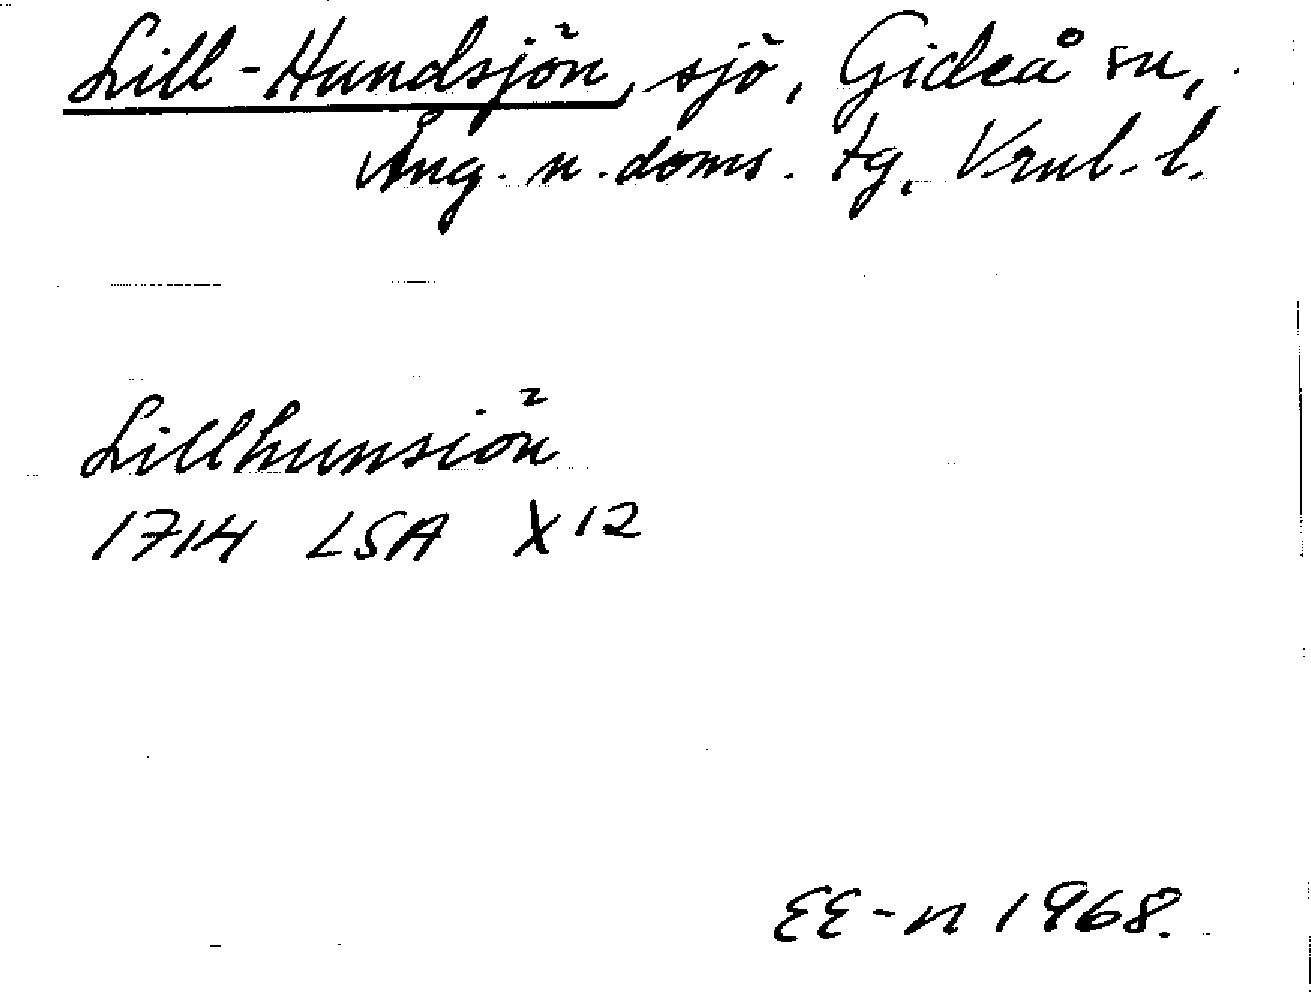 Lill-Hundsjön, sjö, Gideå sn,
Ång. n. doms. tg, Vnl. l.
Lillhunsiön
1714 LSA X12
EE-n 1968.